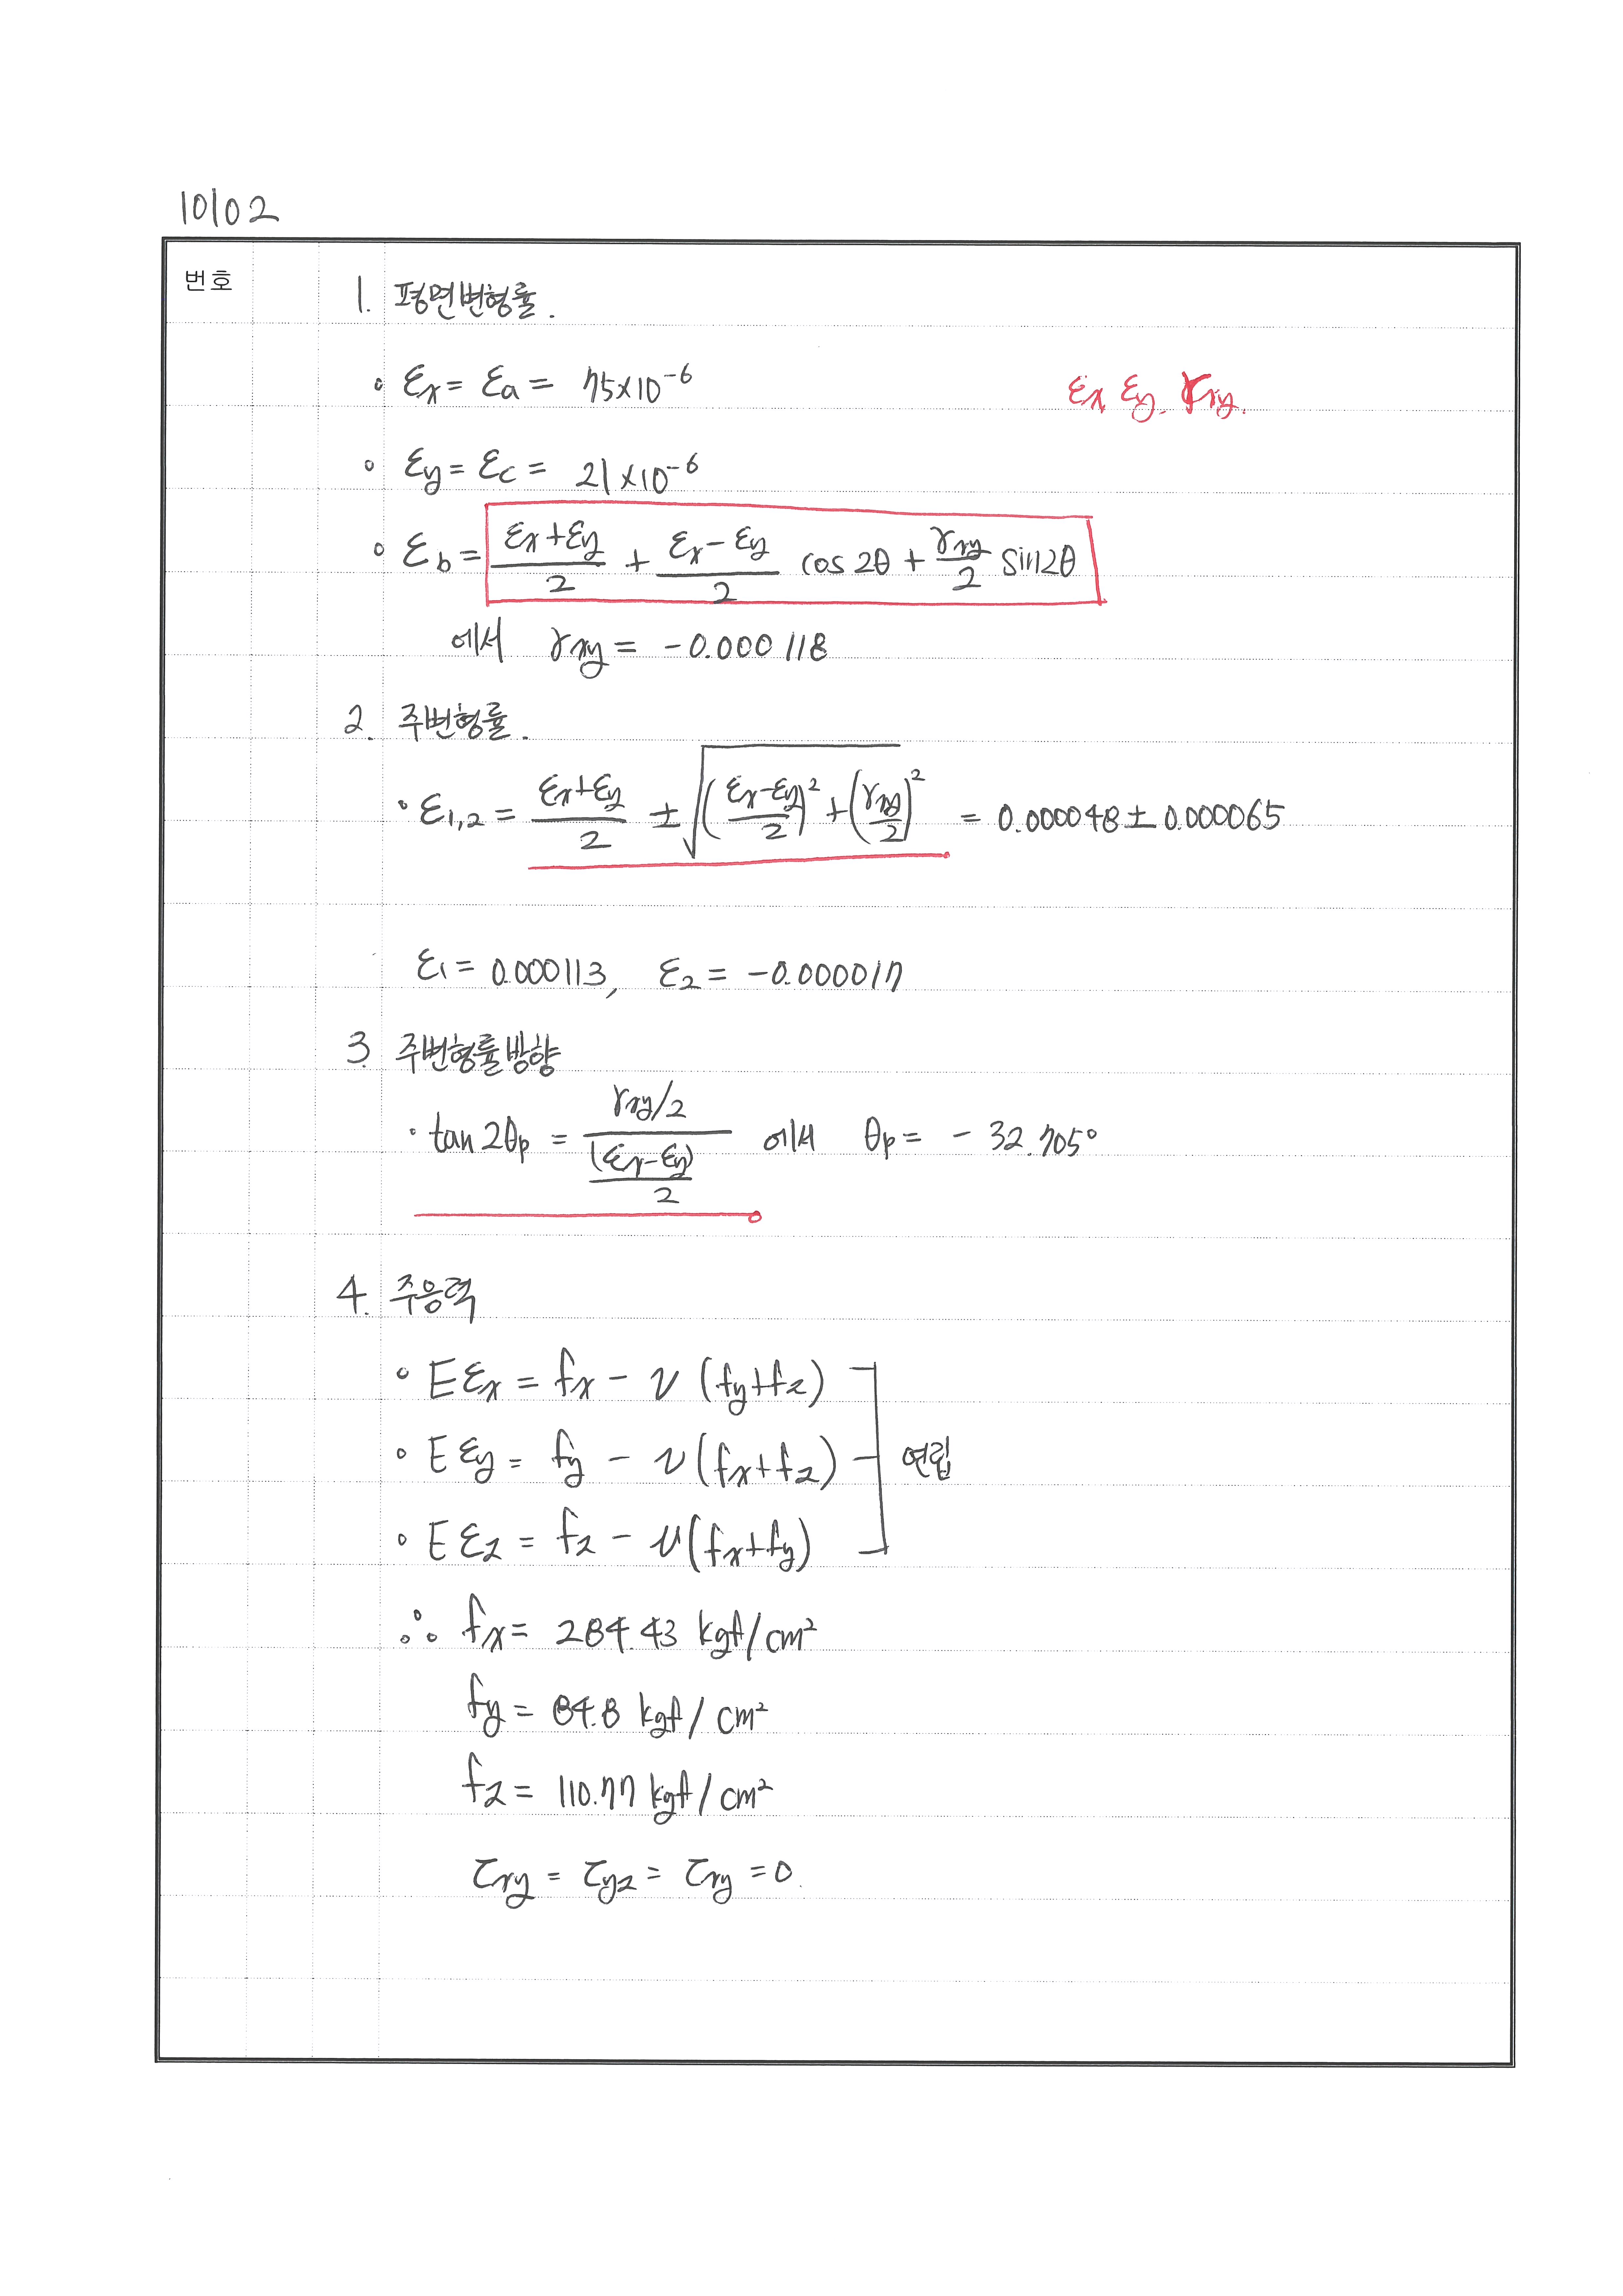 10102
번호
1. 평면변형률.
∘ εx = εa = 75×10⁻⁶
εx εy. γxy.
∘ εy = εc = 21×10⁻⁶
∘ εb = (εx+εy)/2 + (εx-εy)/2 cos 2θ + γxy/2 sin2θ
에서 γxy = -0.000118
2. 주변형률.
· ε1,2 = (εx+εy)/2 ± √(((εx-εy)/2)² + (γxy/2)²) = 0.000048 ± 0.000065
ε1 = 0.000113, ε2 = -0.000017
3. 주변형률방향
· tan 2θp = (γxy/2)/((εx-εy)/2) 에서 θp = - 32.705°
4. 주응력
∘ E εx = fx - ν (fy+fz)
∘ E εy = fy - ν (fx+fz) 연립
∘ E εz = fz - ν (fx+fy)
∴ fx = 284.43 kgf/cm²
fy = 84.8 kgf/cm²
fz = 110.77 kgf/cm²
τxy = τyz = τxy = 0.